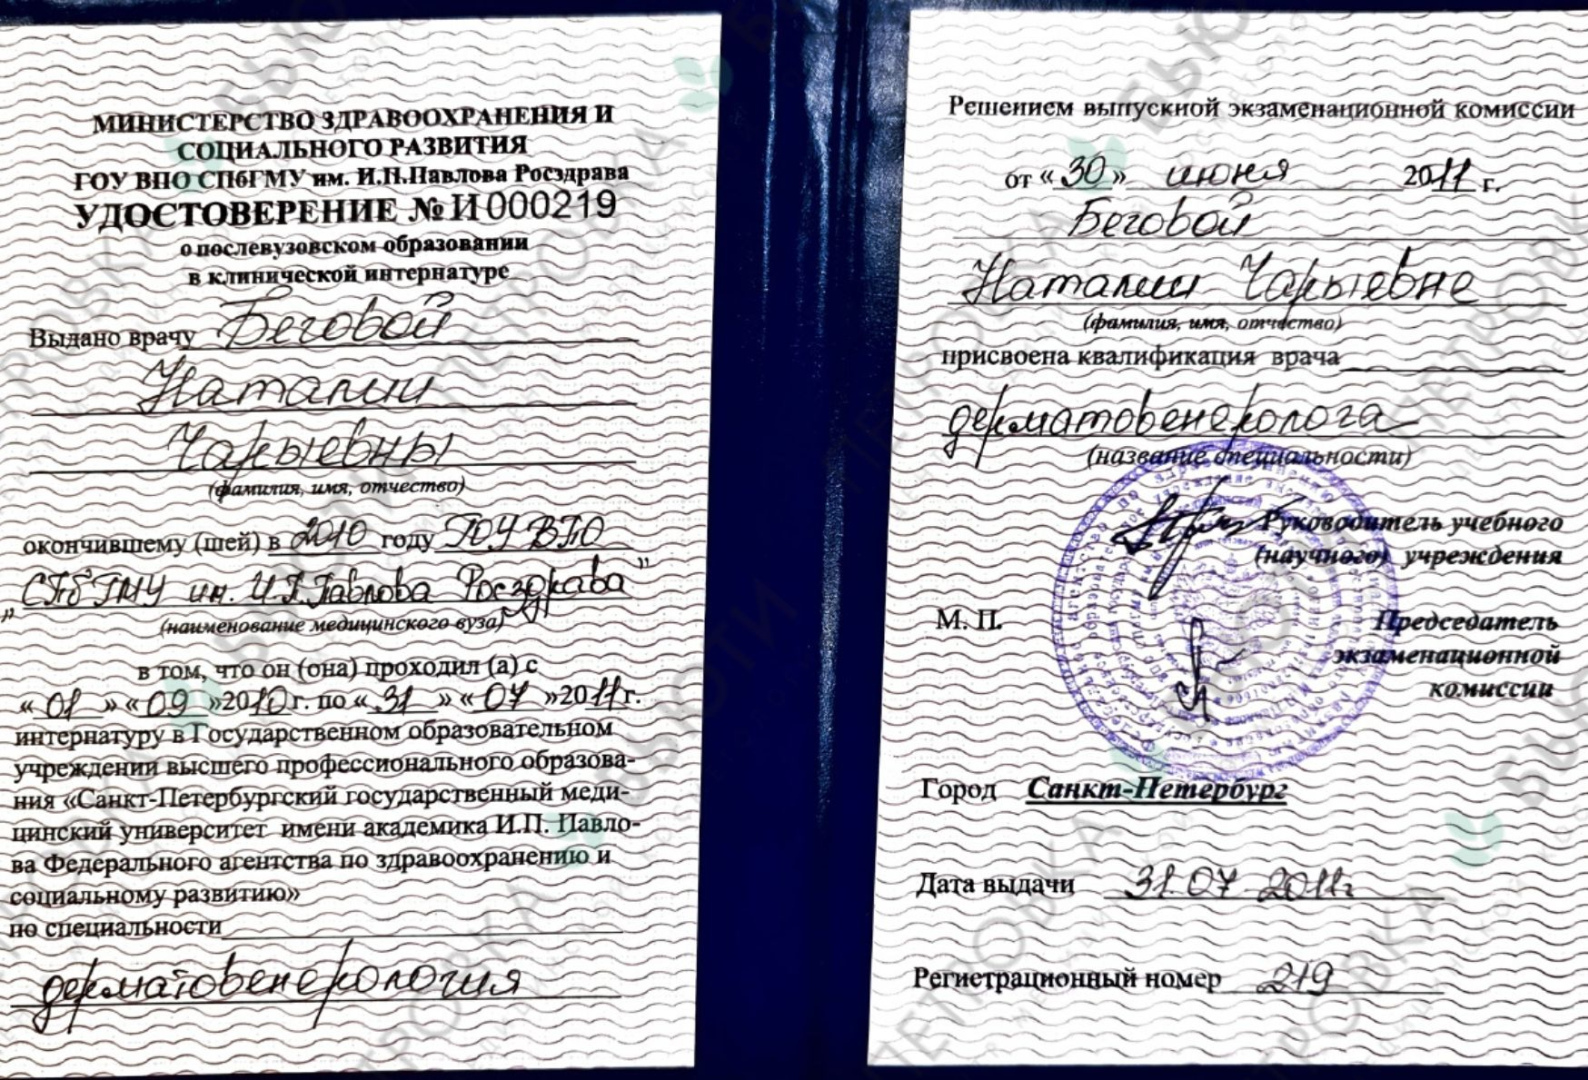 МИНИСТЕРСТВО ЗДРАВООХРАНЕНИЯ И
СОЦИАЛЬНОГО РАЗВИТИЯ
ГОУ ВПО СПбГМУ им. И.П.Павлова Росздрава
УДОСТОВЕРЕНИЕ № И 000219
о послевузовском образовании
в клинической интернатуре
Выдано врачу Беговой
Наталии
Чарыевны
(фамилия, имя, отчество)
окончившему (шей) в 2010 году ГОУ ВПО
„СПбГМУ им. И.П.Павлова Росздрава"
(наименование медицинского вуза)
в том, что он (она) проходил (а) с
«01» «09»2010г. по «31» «07»2011г.
интернатуру в Государственном образовательном
учреждении высшего профессионального образова-
ния «Санкт-Петербургский государственный меди-
цинский университет имени академика И.П. Павло-
ва Федерального агентства по здравоохранению и
социальному развитию»
по специальности
дерматовенерология
Решением выпускной экзаменационной комиссии
от «30» июня 2011 г.
Беговой
Наталии Чарыевне
(фамилия, имя, отчество)
присвоена квалификация врача
дерматовенеролога
(название специальности)
Руководитель учебного
(научного) учреждения
М. П.
Председатель
экзаменационной
комиссии
Город Санкт-Петербург
Дата выдачи 31.07.2011г
Регистрационный номер 219